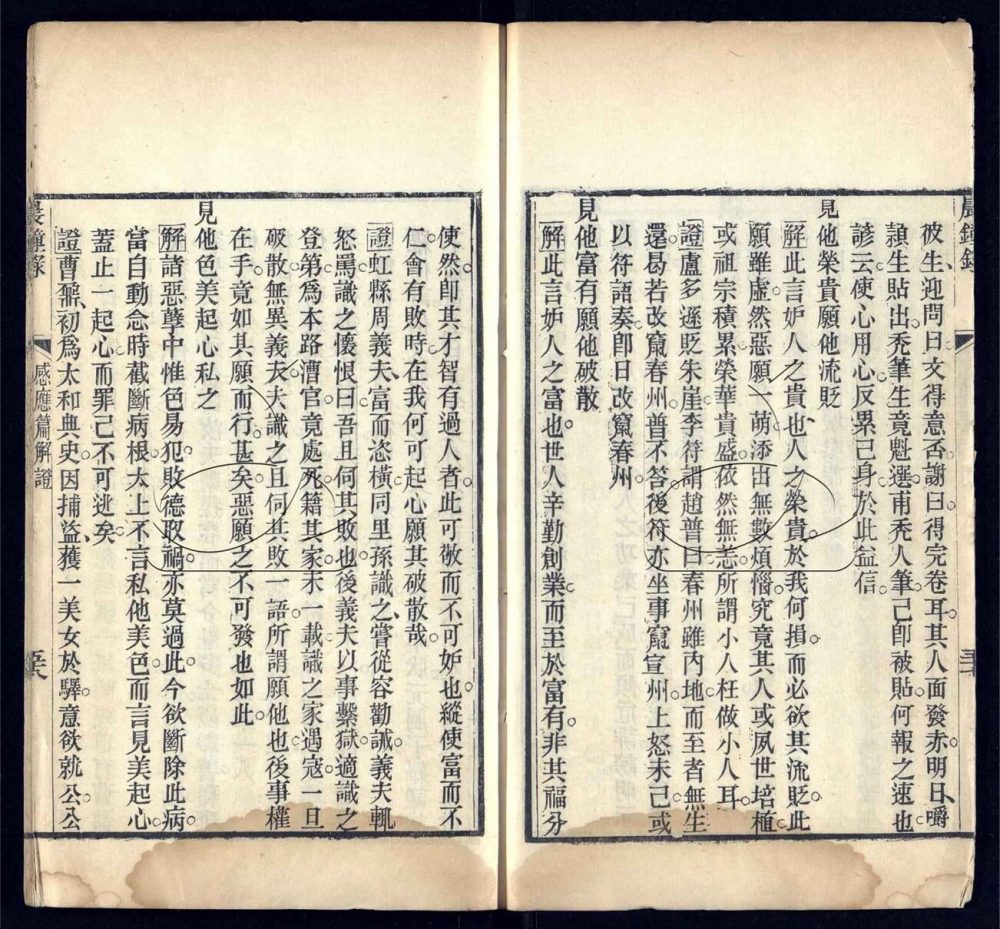 晨鐘錄
彼生迎問曰文得意否謝曰得完卷耳其人面發赤明日嚼
頴生貼出禿筆生竟魁選甫禿人筆己卽被貼何報之速也
諺云使心用心反累己身於此益信
見他榮貴願他流貶
解此言妒人之貴也人之榮貴於我何損而必欲其流貶此
願雖虛然惡願一萌添出無數煩惱究竟其人或夙世培植
或祖宗積累榮華貴盛依然無恙所謂小人枉做小人耳
證盧多遜貶朱崖李符謂趙普曰春州雖內地而至者無生
還曷若改竄春州普不答後符亦坐事竄宣州上怒未己或
以符語奏卽日改竄春州
見他富有願他破散
解此言妒人之富也世人辛勤創業而至於富有非其福分
使然卽其才智有過人者此可敬而不可妒也縱使富而不
仁會有敗時在我何可起心願其破散哉
證虹縣周義夫富而恣橫同里孫識之嘗從容勸誡義夫輒
怒罵識之懷恨曰吾且伺其敗也後義夫以事繫獄適識之
登第爲本路漕官竟處死籍其家未一載識之家遇寇一旦
破散無異義夫夫識之且伺其敗一語所謂願他也後事權
在手竟如其願而行甚矣惡願之不可發也如此
見他色美起心私之
解諸惡孽中惟色易犯敗德取禍亦莫過此今欲斷除此病
當自動念時截斷病根太上不言私他美色而言見美起心
蓋止一起心而罪己不可逃矣
證曹鼐初爲太和典史因捕盜獲一美女於驛意欲就公公
晨鐘錄
感應篇解證